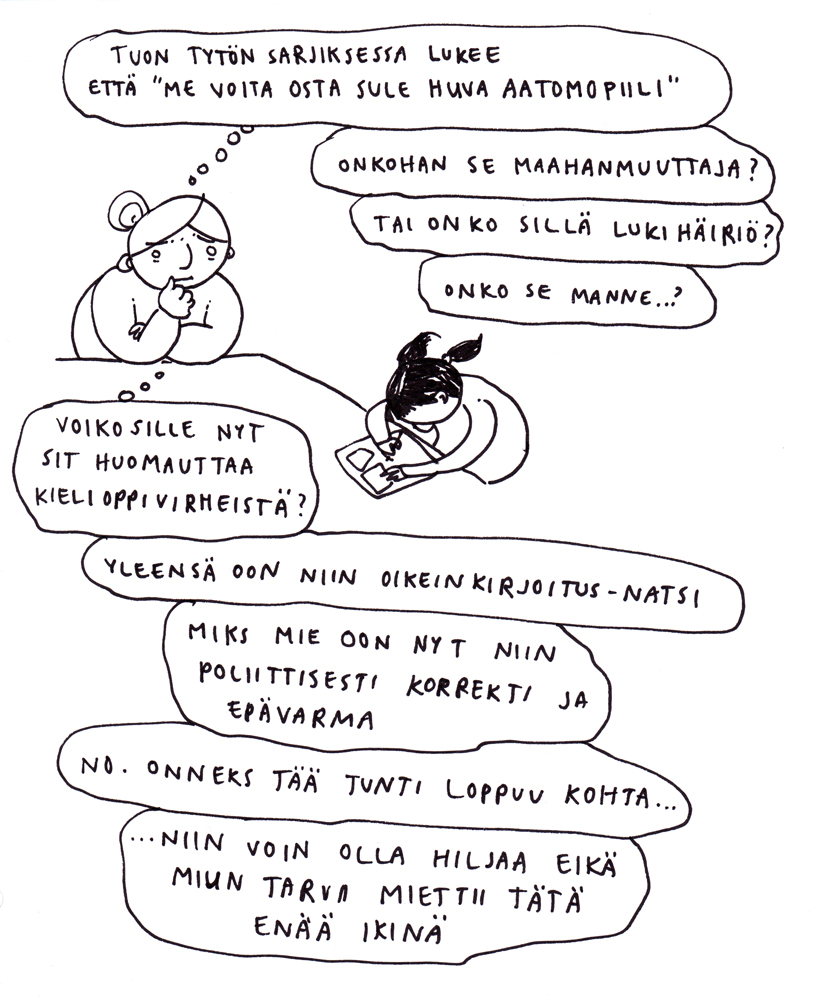 TUON TYTÖN SARJIKSESSA LUKEE
ETTÄ "ME VOITA OSTA SULE HUVA AATOMOPIILI"
ONKOHAN SE MAAHANMUUTTAJA?
TAI ONKO SILLÄ LUKIHÄIRIÖ?
ONKO SE MANNE...?
VOIKO SILLE NYT
SIT HUOMAUTTAA
KIELIOPPIVIRHEISTÄ?
YLEENSÄ OON NIIN OIKEINKIRJOITUS-NATSI
MIKS MIE OON NYT NIIN
POLIITTISESTI KORREKTI JA
EPÄVARMA
NO. ONNEKS TÄÄ TUNTI LOPPUU KOHTA...
...NIIN VOIN OLLA HILJAA EIKÄ
MIUN TARVII MIETTII TÄTÄ
ENÄÄ IKINÄ